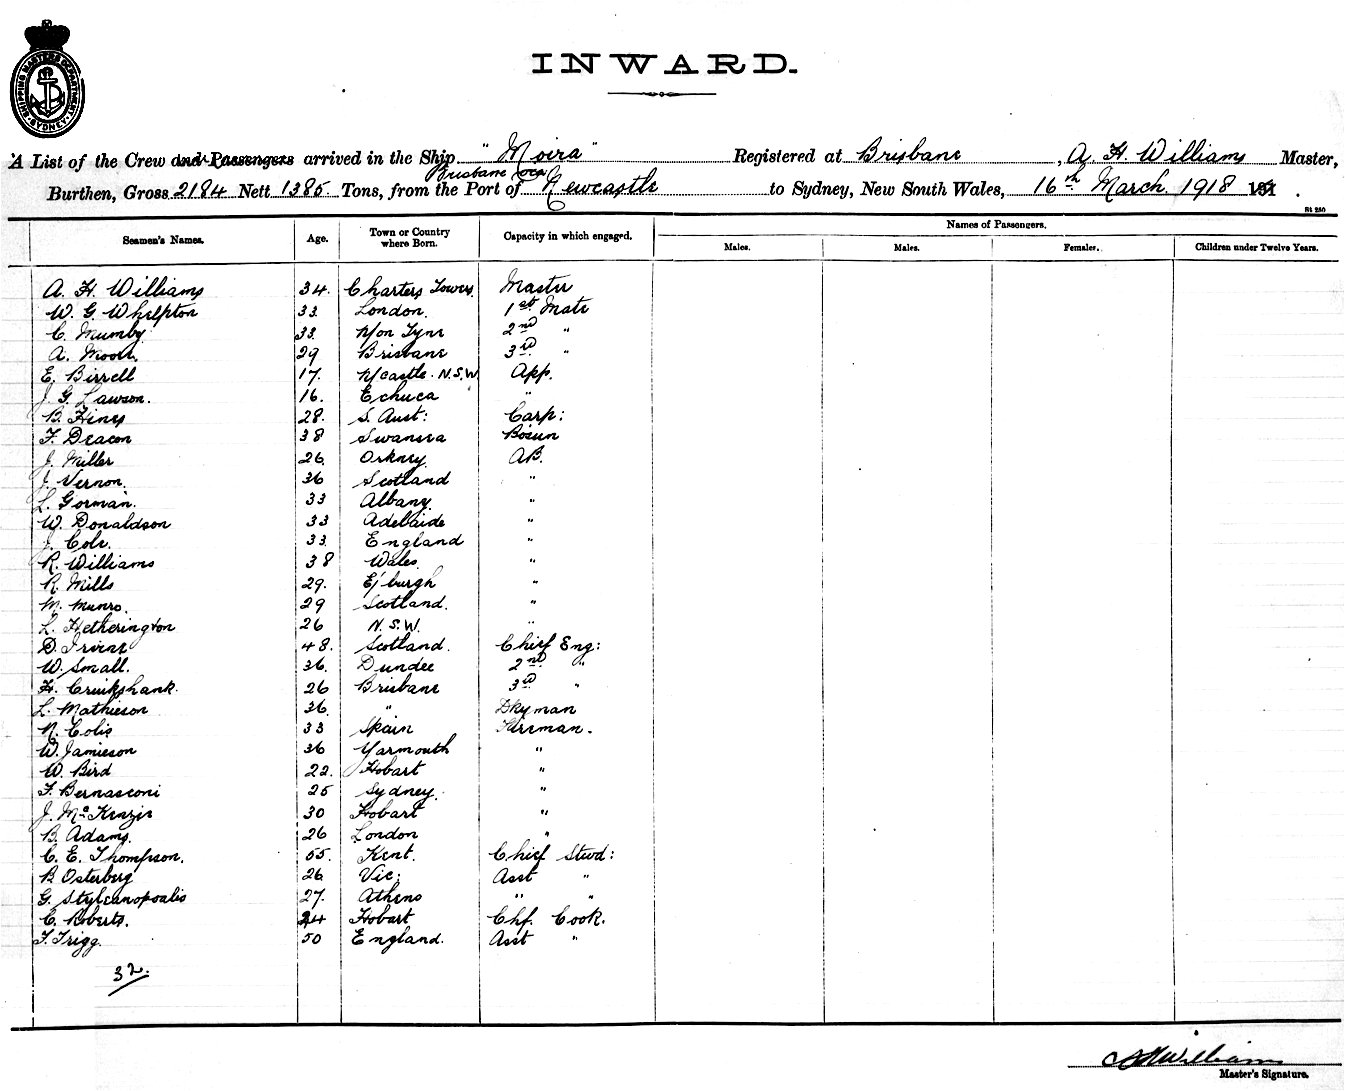 SHIPPING MASTERS DEPARTMENT SYDNEY
INWARD.
A List of the Crew and Passengers arrived in the Ship "Moira" Registered at Brisbane, A. H. Williams Master,
Brisbane via
Burthen, Gross 2184 Nett 1385 Tons, from the Port of Newcastle to Sydney, New South Wales, 16th March 1918 191 .
Seamen's Names. Age. Town or Country where Born. Capacity in which engaged. Names of Passengers.
Males. Males. Females. Children under Twelve Years.
A. H. Williams 34. Charters Towers Master
W. G. Whelpton 33 London. 1st Mate
C. Mumby 33. N/on Tyne 2nd "
A. Moore. 29 Brisbane 3rd "
E. Birrell 17. N/castle. N.S.W. App.
J. G. Lawson. 16. Echuca "
B. Hines 28. S. Aust: Carp:
F. Deacon 38 Swansea Bosun
J. Miller 26. Orkney. AB.
J. Vernon. 36 Scotland "
L. Gorman. 33 Albany. "
W. Donaldson 33 Adelaide "
J. Cole. 33. England "
R. Williams 38 Wales. "
R. Mills 29. E'burgh "
M. Munro. 29 Scotland. "
L. Hetherington 26 N.S.W. "
D. Irvine 48. Scotland. Chief Eng:
W. Small. 36. Dundee 2nd "
H. Cruikshank. 26 Brisbane 3rd "
L. Mathieson 36. " Dkyman
N. Colis 33 Spain Fireman.
W. Jamieson 36 Yarmouth "
W. Bird 22. Hobart "
F. Bernasconi 25 Sydney. "
J. McKenzie 30 Hobart "
B. Adams. 26 London "
C. E. Thompson. 55. Kent. Chief Stwd:
B. Osterberg 26 Vic: Asst "
G. Styleanopoalis 27. Athens " "
C. Roberts. 24 Hobart Chf. Cook.
F. Trigg. 50 England. Asst "
32.
A H Williams
Master's Signature.